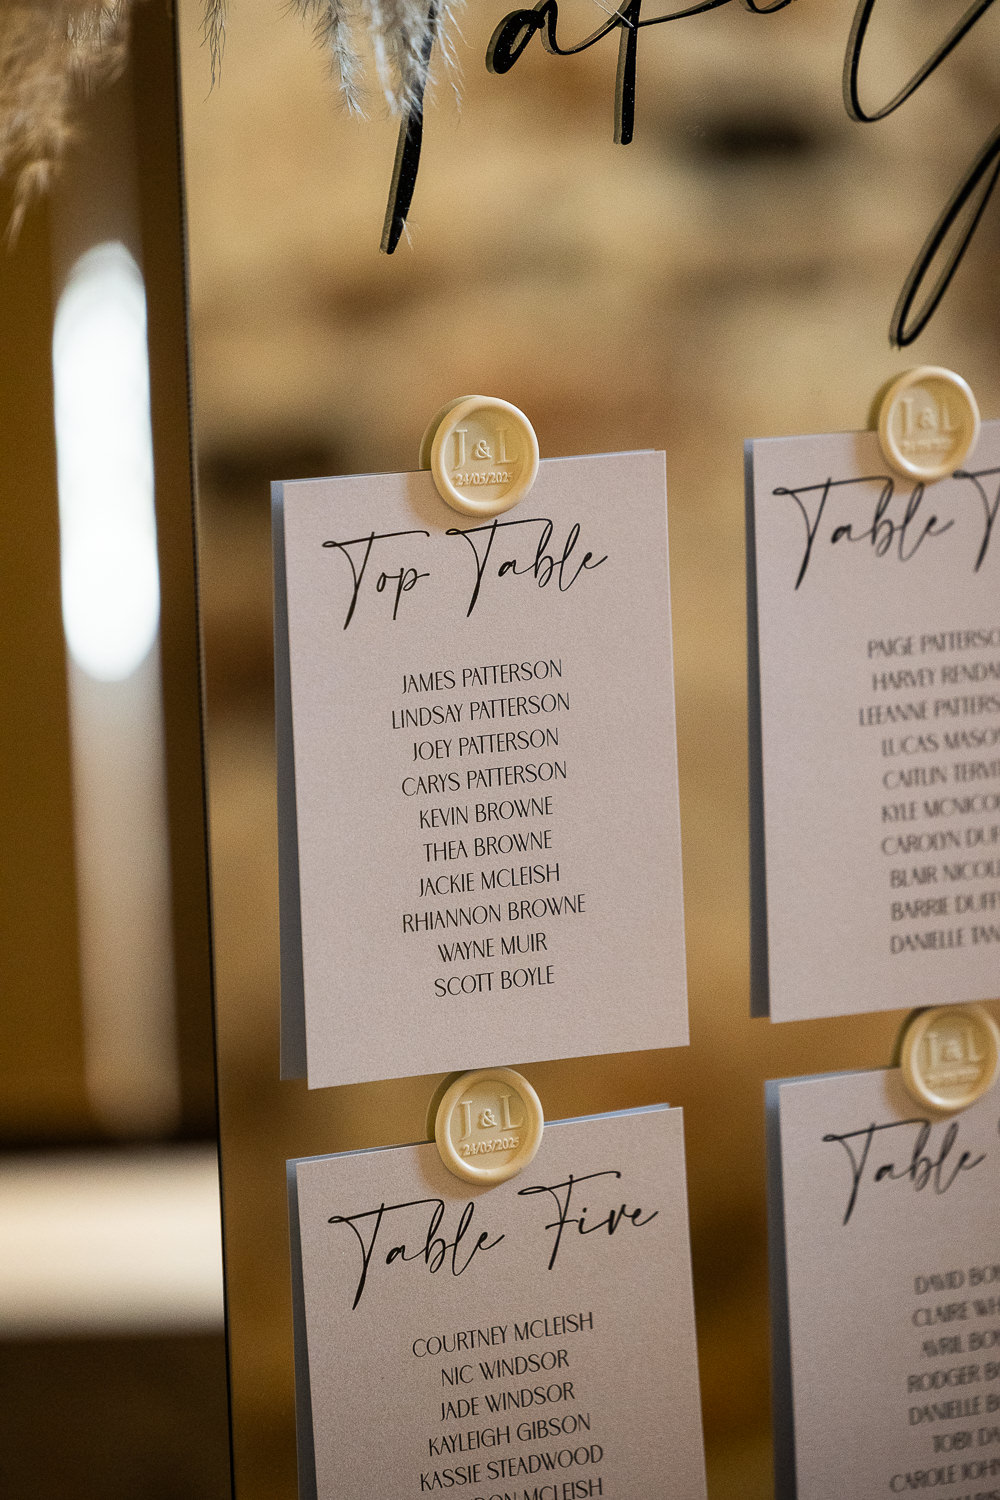 J&L
24/03/2025
Top Table
JAMES PATTERSON
LINDSAY PATTERSON
JOEY PATTERSON
CARYS PATTERSON
KEVIN BROWNE
THEA BROWNE
JACKIE MCLEISH
RHIANNON BROWNE
WAYNE MUIR
SCOTT BOYLE
J&L
Table
PAIGE
HARVEY
LEEANNE
LUCAS
CAITLIN
KYLE
CAROLYN
BLAIR
BARRIE DUFFY
DANIELLE
J&L
24/03/2025
Table Five
COURTNEY MCLEISH
NIC WINDSOR
JADE WINDSOR
KAYLEIGH GIBSON
KASSIE STEADWOOD
MCLEISH
J&L
Table
DAVID
CLAIRE
AVRIL
RODGER
DANIELLE
TOBI
CAROLE